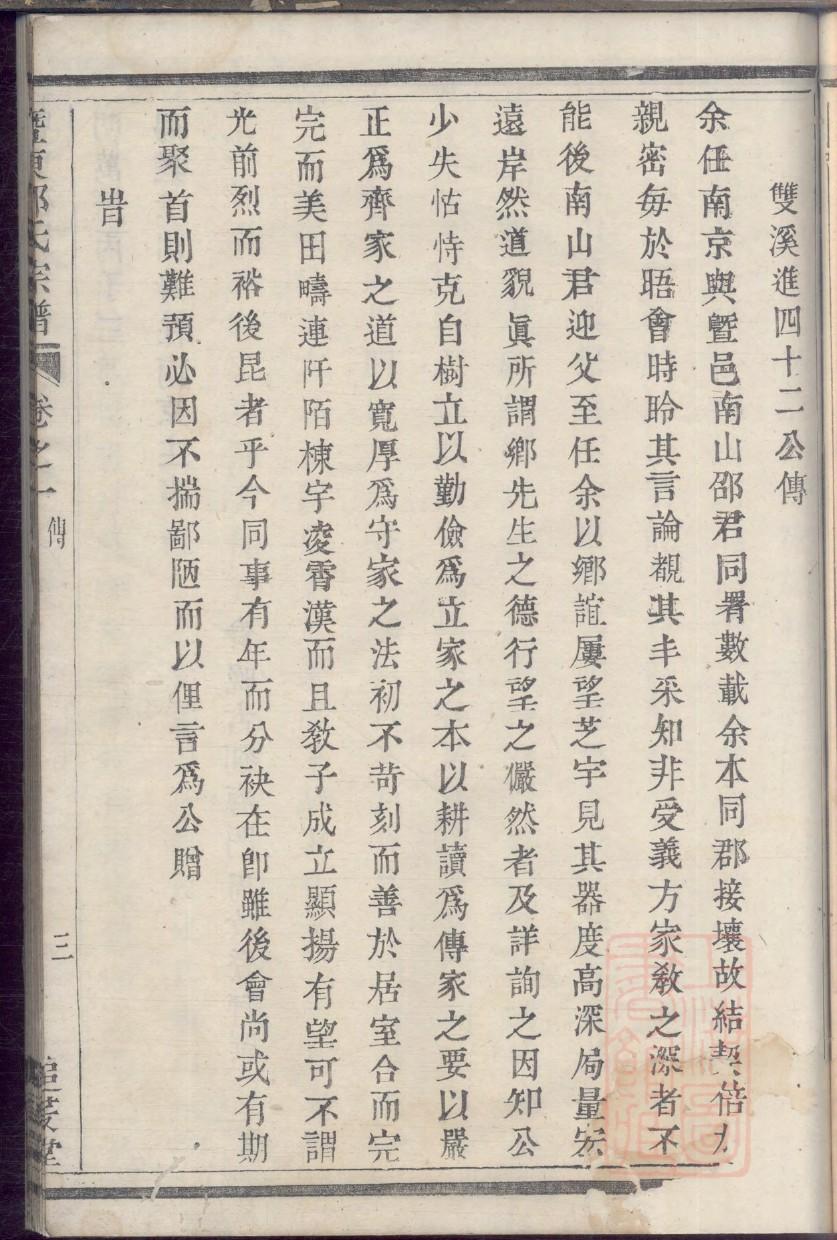 雙溪進四十二公傳
余任南京與暨邑南山邵君同署數載余本同郡接壤故結契倍
親密每於晤會時聆其言論覩其丰采知非受義方家敎之深者不
能後南山君迎父至任余以鄉誼屢望芝宇見其器度高深局量宏
遠岸然道貌眞所謂鄉先生之德行望之儼然者及詳詢之因知公
少失怙恃克自樹立以勤儉爲立家之本以耕讀爲傳家之要以嚴
正爲齊家之道以寬厚爲守家之法初不苛刻而善於居室合而完
完而美田疇連阡陌棟宇凌霄漢而且敎子成立顯揚有望可不謂
光前烈而裕後昆者乎今同事有年而分袂在卽雖後會尚或有期
而聚首則難預必因不揣鄙陋而以俚言爲公贈
旹
暨東邵氏宗譜 卷之一 傳 三 追慕堂